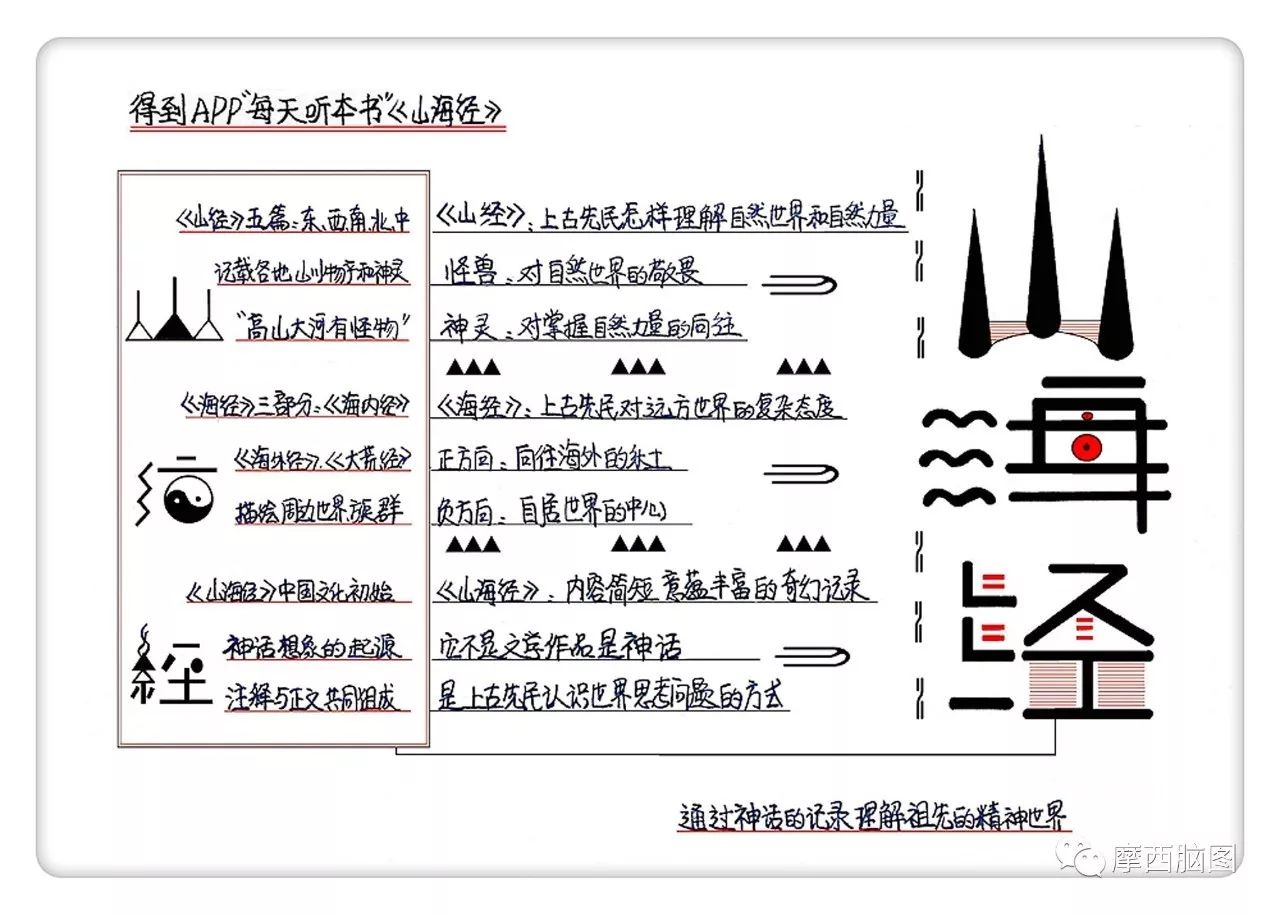 得到APP"每天听本书"《山海经》
《山经》五篇：东、西、南、北、中
记载各地山川物产和神灵
"高山大河有怪物"
《海经》三部分：《海内经》
《海外经》、《大荒经》
描绘周边世界、族群
《山海经》中国文化初始
神话想象的起源
注释与正文共同组成
《山经》：上古先民怎样理解自然世界和自然力量
怪兽：对自然世界的敬畏
神灵：对掌握自然力量的向往
《海经》：上古先民对远方世界的复杂态度
正方向：向往海外的乐土
负方向：自居世界的中心
《山海经》：内容简短 意蕴丰富的奇幻记录
它不是文学作品是神话
是上古先民认识世界思考问题的方式
山
海
经
经
通过神话的记录理解祖先的精神世界
摩西脑图